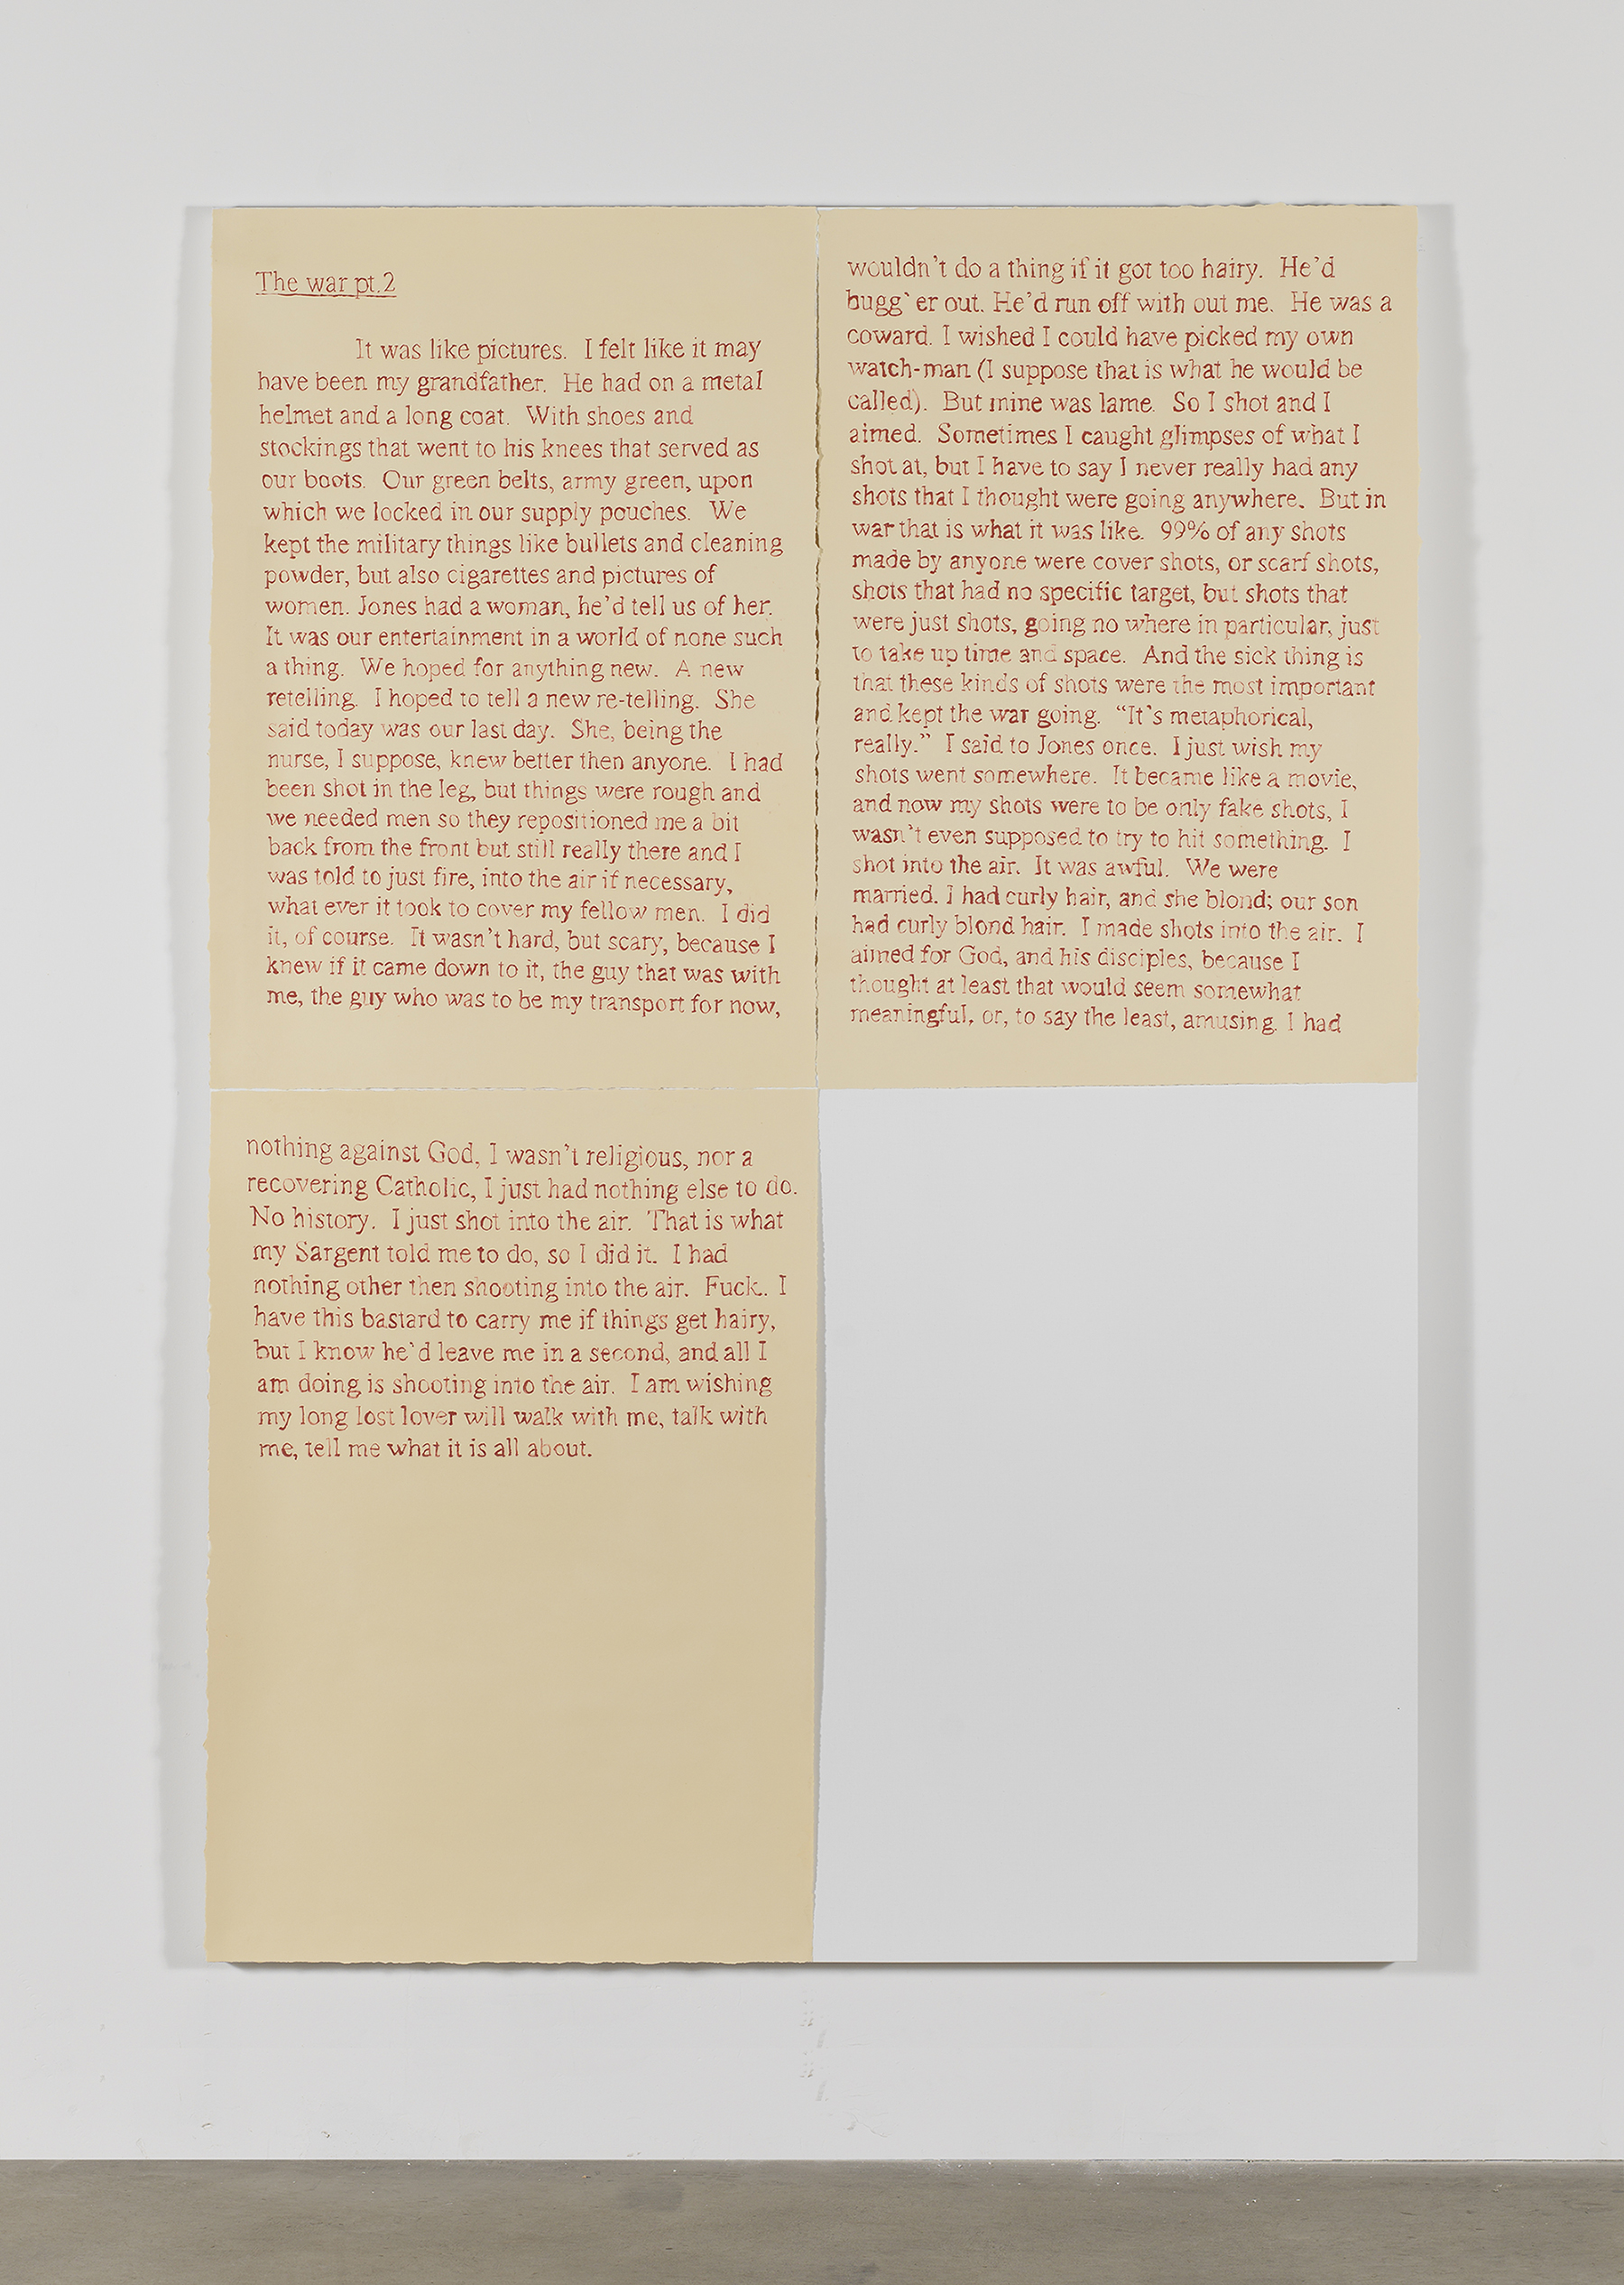 The war pt.2
It was like pictures.  I felt like it may
have been my grandfather.  He had on a metal
helmet and a long coat.  With shoes and
stockings that went to his knees that served as
our boots.  Our green belts, army green, upon
which we locked in our supply pouches.  We
kept the military things like bullets and cleaning
powder, but also cigarettes and pictures of
women. Jones had a woman, he'd tell us of her.
It was our entertainment in a world of none such
a thing.  We hoped for anything new.  A new
retelling.  I hoped to tell a new re-telling.  She
said today was our last day.  She, being the
nurse, I suppose, knew better then anyone.  I had
been shot in the leg, but things were rough and
we needed men so they repositioned me a bit
back from the front but still really there and I
was told to just fire, into the air if necessary,
what ever it took to cover my fellow men.  I did
it, of course.  It wasn't hard, but scary, because I
knew if it came down to it, the guy that was with
me, the guy who was to be my transport for now,
wouldn't do a thing if it got too hairy.  He'd
bugg`er out. He'd run off with out me.  He was a
coward. I wished I could have picked my own
watch-man (I suppose that is what he would be
called).  But mine was lame.  So I shot and I
aimed.  Sometimes I caught glimpses of what I
shot at, but I have to say I never really had any
shots that I thought were going anywhere.  But in
war that is what it was like.  99% of any shots
made by anyone were cover shots, or scarf shots,
shots that had no specific target, but shots that
were just shots, going no where in particular, just
to take up time and space.  And the sick thing is
that these kinds of shots were the most important
and kept the war going.  "It's metaphorical,
really."  I said to Jones once.  I just wish my
shots went somewhere.  It became like a movie,
and now my shots were to be only fake shots, I
wasn't even supposed to try to hit something.  I
shot into the air.  It was awful.  We were
married. I had curly hair, and she blond; our son
had curly blond hair.  I made shots into the air.  I
aimed for God, and his disciples, because I
thought at least that would seem somewhat
meaningful, or, to say the least, amusing. I had
nothing against God, I wasn't religious, nor a
recovering Catholic, I just had nothing else to do.
No history.  I just shot into the air.  That is what
my Sargent told me to do, so I did it.  I had
nothing other then shooting into the air.  Fuck.  I
have this bastard to carry me if things get hairy,
but I know he'd leave me in a second, and all I
am doing is shooting into the air.  I am wishing
my long lost lover will walk with me, talk with
me, tell me what it is all about.